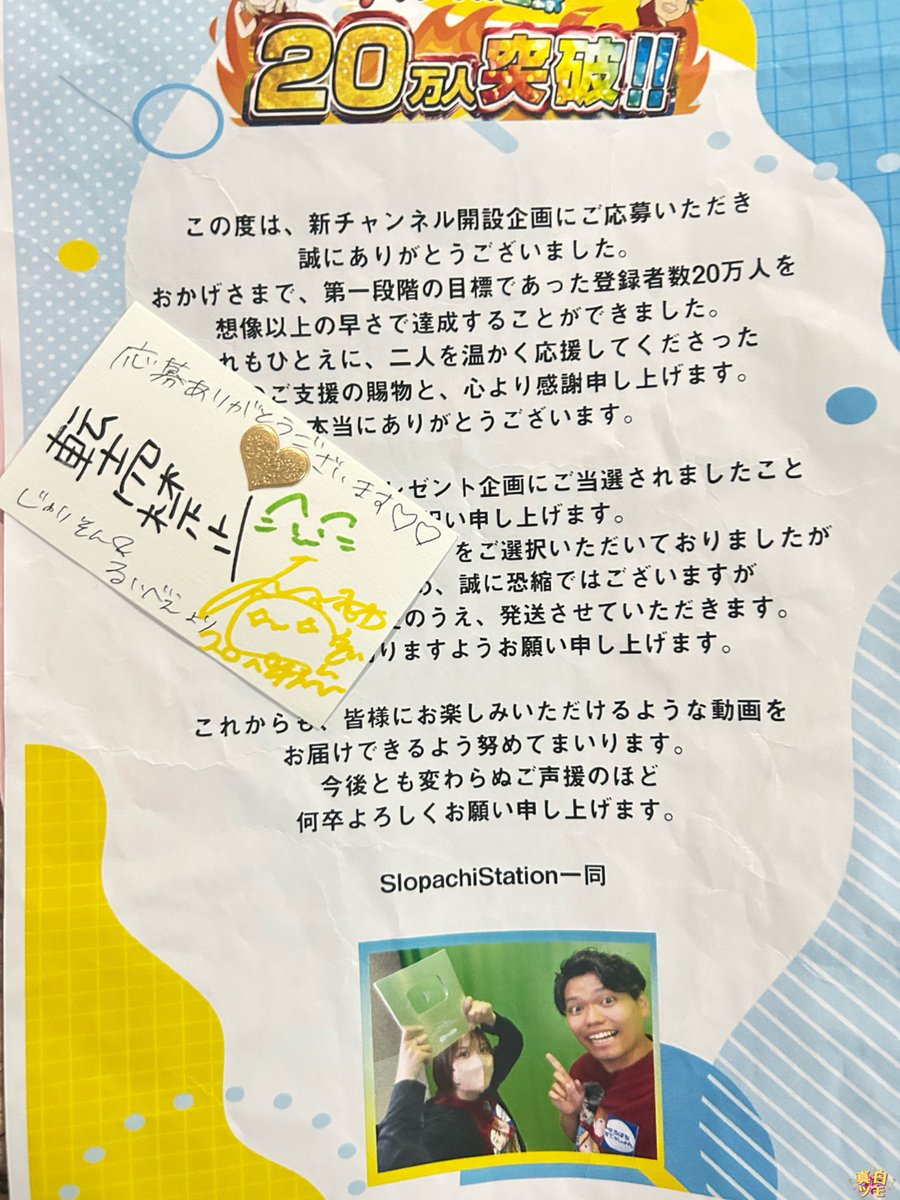 20万人突破!!
この度は、新チャンネル開設企画にご応募いただき
誠にありがとうございました。
おかげさまで、第一段階の目標であった登録者数20万人を
想像以上の早さで達成することができました。
れもひとえに、二人を温かく応援してくださった
のご支援の賜物と、心より感謝申し上げます。
本当にありがとうございます。
レゼント企画にご当選されましたこと
い申し上げます。
をご選択いただいておりましたが
、誠に恐縮ではございますが
のうえ、発送させていただきます。
りますようお願い申し上げます。
これからも、皆様にお楽しみいただけるような動画を
お届けできるよう努めてまいります。
今後とも変わらぬご声援のほど
何卒よろしくお願い申し上げます。
SlopachiStation一同
応募ありがとうございます♡♡
じゃりそん&
るいべえより